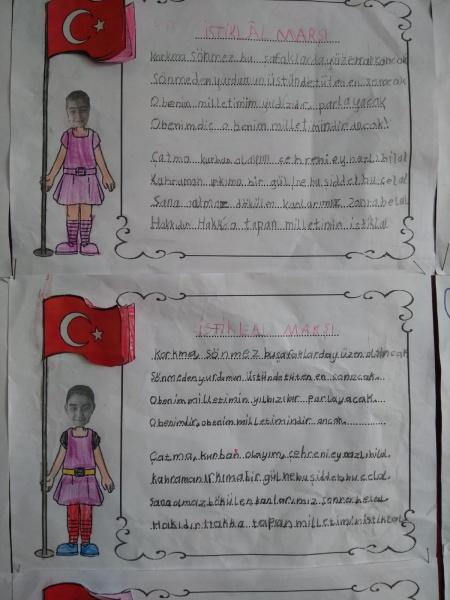 İSTİKLÂL MARŞI
Korkma Sönmez bu şafaklarda yüzen al sancak
Sönmeden yurdumun üstünde tüten en son ocak
O benim milletimin yıldızıdır parlayacak
O benimdir o benim milletimindir ancak!
Çatma kurban olayım çehreni ey nazlı hilal
Kahraman ırkıma bir gül ne bu şiddet bu celal
Sana olmaz dökülen kanlarımız sonra helal
Hakkıdır Hakk'a tapan milletimin istiklal
İSTİKLAL MARŞI
Korkma, sönmez bu şafaklarda yüzen al sancak
Sönmeden yurdumun üstünde tüten en son ocak.
O benim milletimin yıldızıdır parlayacak.
O benimdir, o benim milletimindir ancak.
Çatma, kurban olayım, çehreni ey nazlı hilal.
Kahraman ırkıma bir gül ne bu şiddet bu celal.
Sana olmaz dökülen kanlarımız sonra helal.
Hakıdır Hakka tapan milletimin istiklal